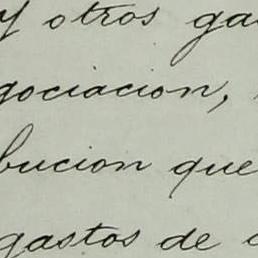 y otros ga
gociacion,
bucion que
gastos de